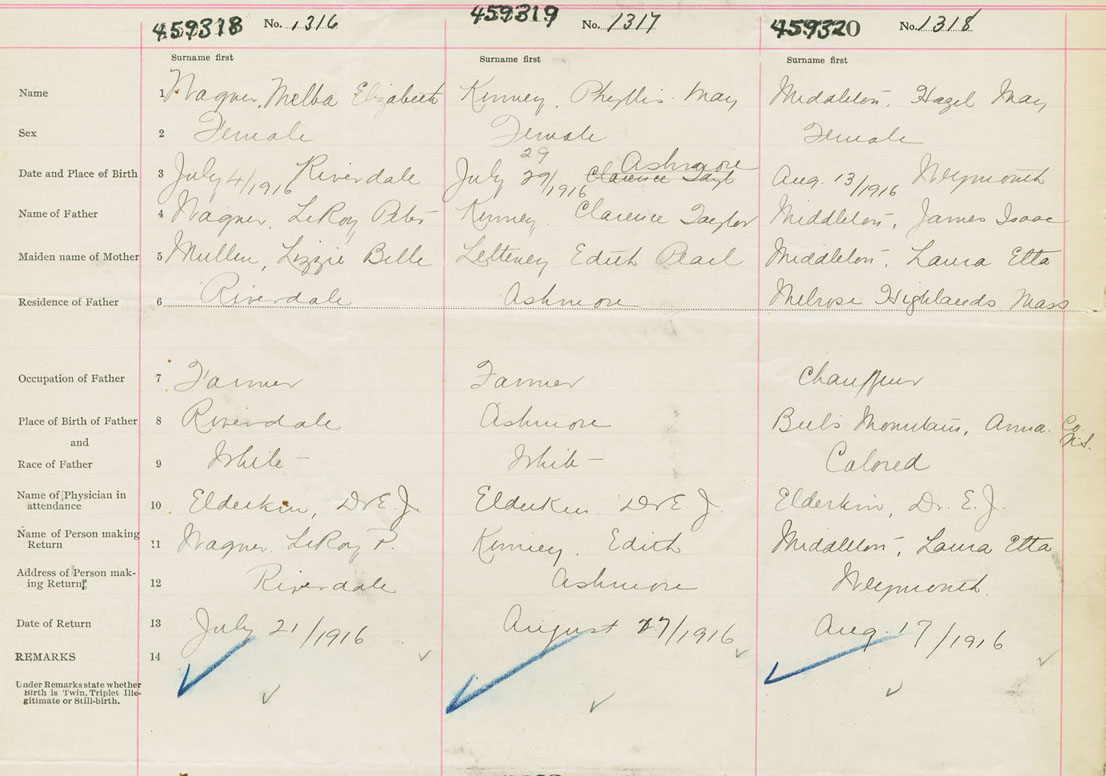 459318 No. 1316 459319 No. 1317 459320 No. 1318
Surname first Surname first Surname first
Name 1 Wagner, Melba Elizabeth Kinney, Phyllis May Middleton, Hazel May
Sex 2 Female Female Female
29 Ashmore
Date and Place of Birth 3 July 4/1916 Riverdale July 29/1916 Clarence Tayl Aug. 13/1916 Weymouth
Name of Father 4 Wagner, LeRoy Peter Kinney, Clarence Taylor Middleton, James Isaac
Maiden name of Mother 5 Mullen, Lizzie Belle Letteney Edith Pearl Middleton, Laura Etta
Residence of Father 6 Riverdale Ashmore Melrose Highlands Mass
Occupation of Father 7 Farmer Farmer Chauffeur
Place of Birth of Father 8 Riverdale Ashmore Mountain, Anna. Co.
and N.S.
Race of Father 9 White White Colored
Name of Physician in
attendance 10 Elderkin, Dr E. J. Elderkin, Dr E. J. Elderkin, Dr. E. J.
Name of Person making
Return 11 Wagner, LeRoy P. Kinney, Edith Middleton, Laura Etta
Address of Person mak-
ing Return 12 Riverdale Ashmore Weymouth.
Date of Return 13 July 21/1916 August 17/1916 Aug. 17/1916
REMARKS 14
Under Remarks state whether
Birth is Twin, Triplet Ille-
gitimate or Still-birth.